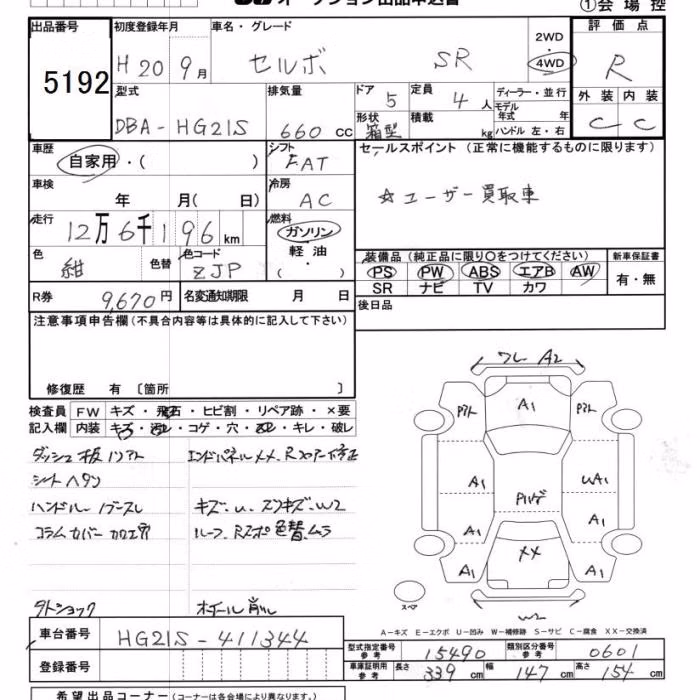 オークション出品申込書
①会場控
出品番号 初度登録年月 車名・グレード 2WD・4WD 評価点
5192 H20 9月 セルボ SR R
型式 排気量 ドア 定員 ディーラー・並行 外装 内装
DBA-HG21S 660 CC 5 4人 モデル年式 年 C C
形状 箱型 積載 kg ハンドル 左・右
車歴 シフト セールスポイント (正常に機能するものに限ります)
自家用・( ) FAT
車検 冷房 ☆ユーザー買取車
年 月( 日) AC
走行 燃料
12万6千196km ガソリン
色 色替 色コード 軽油 装備品 (純正品に限り○をつけてください) 新車保証書
紺 ZJP ・( ) PS PW ABS エアB AW 有・無
SR ナビ TV カワ
R券 9,670円 名変通知期限 月 日 後日品
注意事項申告欄 (不具合内容等は具体的に記入して下さい)
修復歴 有 〔箇所 〕
検査員 FW キズ・飛石・ヒビ割・リペア跡・×要
記入欄 内装 キズ・汚レ・コゲ・穴・ヌレ・キレ・破レ
ダッシュ板ソリアト エンドパネルXX、
シートヘタリ
ハンドル キズ・U・スリキズ・W2
コラムカバー ルーフ、 色替ムラ
ホイール削レ
ワレ A2
A1
A1 UA1
A1 A1
XX
A1 A1
スペア
W2
A-キズ E-エクボ U-凹み W-補修跡 S-サビ C-腐食 XX-交換済
車台番号 HG21S-411344
登録番号
型式指定番号 参考 15490 類別区分番号 参考 0601
車庫証明用 参考 長さ 339cm 幅 147cm 高さ 154cm
希望出品コーナー (コーナーは各会場により異なります。)